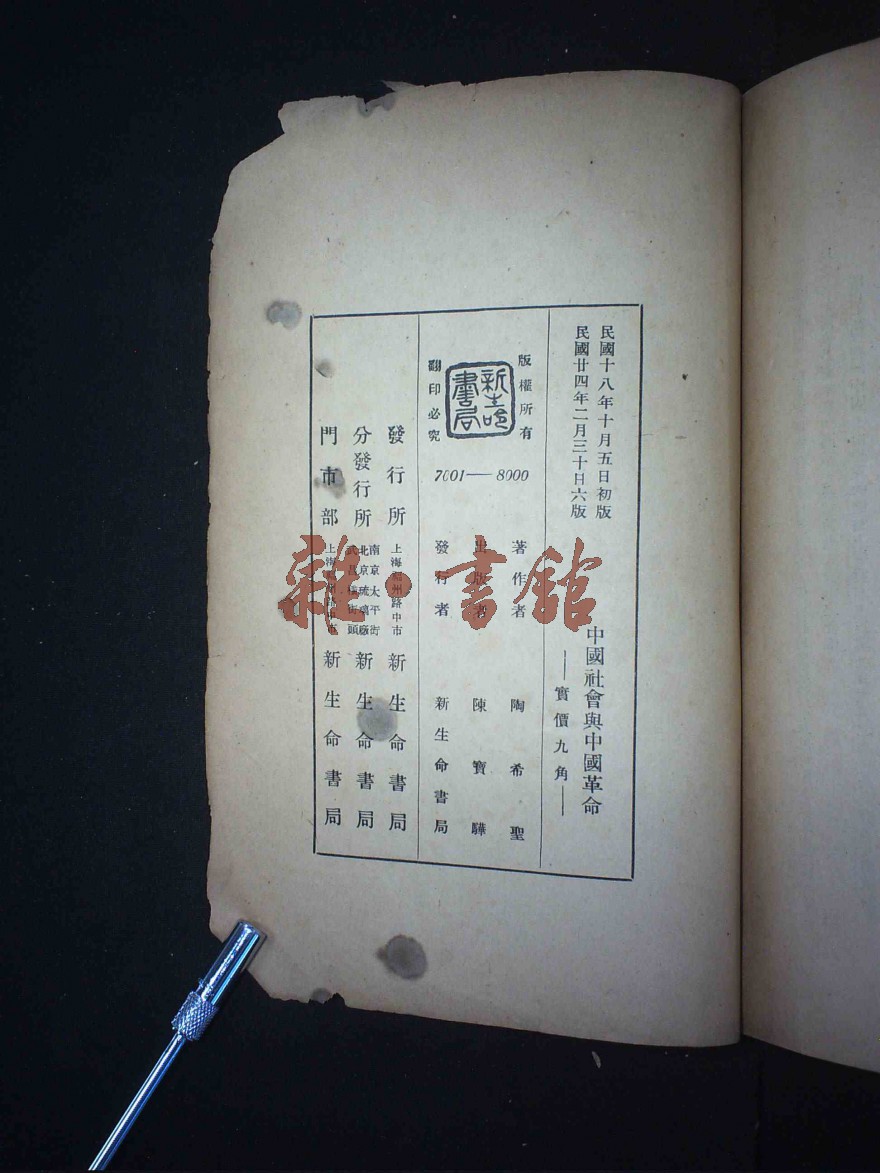 民國十八年十月五日初版
民國廿四年二月三十日六版
中國社會與中國革命
實價九角
版權所有
新生命書局
翻印必究
7001—8000
著作者 陶希聖
出版者 陳寶驊
發行者 新生命書局
發行所 上海福州路中市 新生命書局
分發行所 南京太平街 北京琉璃廠 武昌橫街頭 新生命書局
門市部 上海 新生命書局
雜·書館